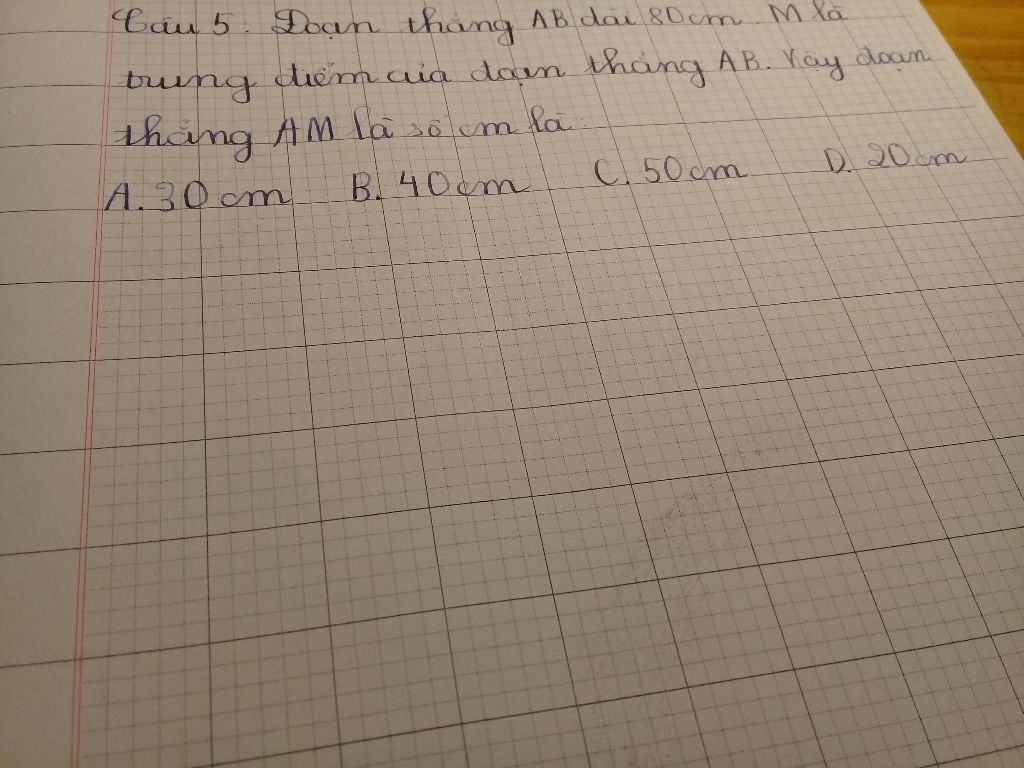 Câu 5. Đoạn thẳng AB dài 80cm. M là
trung điểm của đoạn thẳng AB. Vậy đoạn
thẳng AM là số cm là
A. 30cm B. 40cm C. 50cm D. 20cm